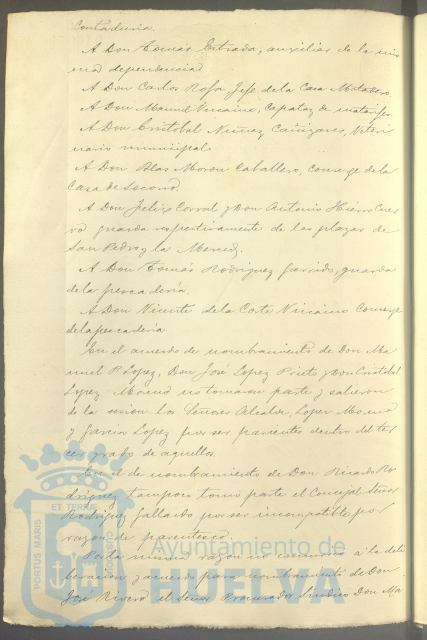 Contaduria.
A Don Tomás Estrada, auxiliar de la mis
ma dependencia
A Don Carlos Rofa Jefe de la Casa Matadero
A Don Manuel Vizcaino, Capataz de matarifes
A Don Cristobal Nuñez Cañizares, Veteri
nario municipal
A Don Blas Moron Caballero, Conserge de la
Casa de Socorro.
A Don Felix Corral y Don Antonio Hierro Cuer
vo guarda respectivamente de las plazas de
San Pedro y la Merced.
A Don Tomás Rodriguez Garrido, guarda
de la pescadería.
A Don Vicente de la Corte Vizcaino Conserge
de la pescadería
En el acuerdo de nombramiento de Don Ma
nuel P. Lopez, Don José Lopez Prieto y Don Cristobal
Lopez Moreno no tomaron parte y salieron
de la sesion los Señores Alcalde, Lopez Moreno
y Garcia Lopez por ser parientes dentro del ter
cer grado de aquellos.
En el de nombramiento de Don Ricardo Ro
driguez tampoco tomó parte el Concejal Señor
Rodriguez Gallardo por ser incompatible por
razon de parentesco.
Por la misma razon no a la deli
beracion y acuerdo para nombramiento de Don
José Rivero el Señor Procurador Sindico Don Ma
PORTUS MARIS
ET TERRAE
Ayuntamiento de
HUELVA